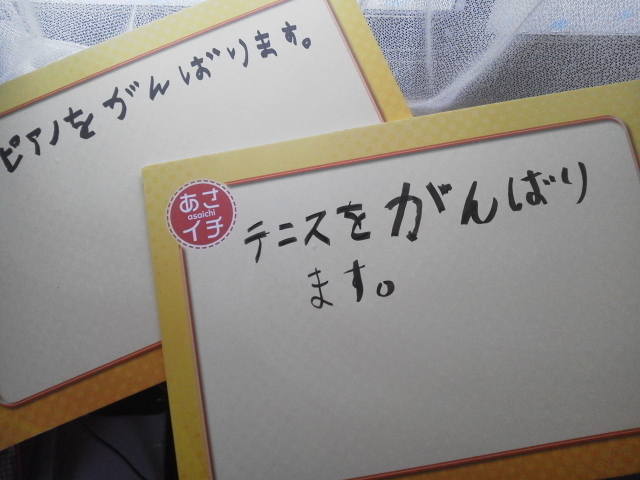 ピアノをがんばります。
あさ
asaichi
イチ
テニスをがんばり
ます。